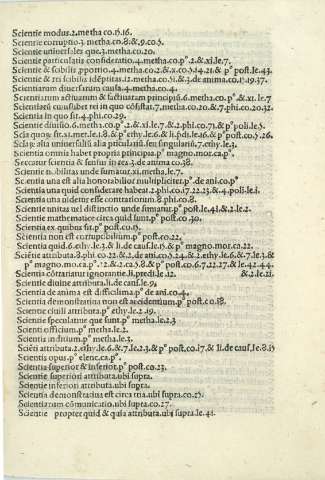 Scientie modus.2.metha.co.15.16.
Scientie corruptio.3.metha.co.8.&.9.co.5.
Scientie universales que.3.metha.co.20.
Scientie particularis consideratio.4.metha.co.pº.2.&.xi.le.7.
Scientie & scibilis ꝓportio.4.metha.co.2.&.x.co.5.&.21.& pº post.le.43.
Scientie & rei scibilis idẽptitas.12.metha.co.51.&.3.de anima.co.15.19.37.
Scientiarum diuersarum causa.4.metha.co.4.
Scientiarum actiuarum & factiuarum principiũ.6.metha.co.pº.&.xi.le.7
subiectũ.7.metha.co.20.&.7.phi.co.20.32.
Scientia in quo sit.4.phi.co.29.
Scientie diuisio.6.metha.co.pº.2.&.xi.le.7.&.2.phi.co.71.& pº poli.le.5.
Scientia omnis habet propria principia.pº magno.mor.ca.pº.
.3.de anima.co.38.
Scientie nobilitas unde sumatur.xi.metha.le.7.
Scientia una est alia honorabilior multipliciter.pº de ani.co.pº
Scientia una quid considerare habeat.2.phi.co.17.22.23.&.4.poli.le.i.
Scientia una uidetur esse contrariorum.8.phi.co.8.
Scientie unitas uel distinctio unde sumatur.pº post.le.41.&.2.le.2.
Scientie mathematice circa quid sunt.pº post.co.30.
Scientia ex quibus fit.pº post.co.15.
Scientia non est corruptibilium.pº post.co.22.
Scientia quid.6.ethy.le.3.& li.de cauſ.le.15.& pº magno.mor.ca.22.
Sciẽtie attributa.8.phi.co.22.&.2.de ani.co.5.24.&.2.ethy.le.6.&.7.le.3.&
pº magno.mo.ca.pº.12.&.2.ca.5.8.& pº post.co.6.7.22.27.& le.42.44.
Scientiis cõtrariatur ignorantia li.predi.le.12. &.2.le.21.
Scientie diuine attributa.li.de cauſ.le.9.
Scientia de anima est difficilima.pº de ani.co.4.
Scientia demonstratiua non est accidentium.pº post.co.18.
Scientie ciuili attributa.pº ethy.le.2.19.
Scientie speculatiue que sunt.pº metha.le.2.3
Scienti officium.pº metha.le.2.
Scientis inditium.pº metha.le.3.
Sciẽti attributa.2.ethy.le.6.&.7.le.2.3.& pº post.co.17.& li.de cauſ.le.8.15
Scientis opus.pº elenc.ca.pº.
Scientia superior & inferior.pº post.co.23.
Scientie superiori attributa.ubi supra.
Scientie inferiori attributa.ubi supra.
Scientia demonstratiua est circa tria.ubi supra.co.25.
Scientiarum cõmunicatio.ubi supra.co.27.
Scientie propter quid & quia attributa.ubi supra.le.41.